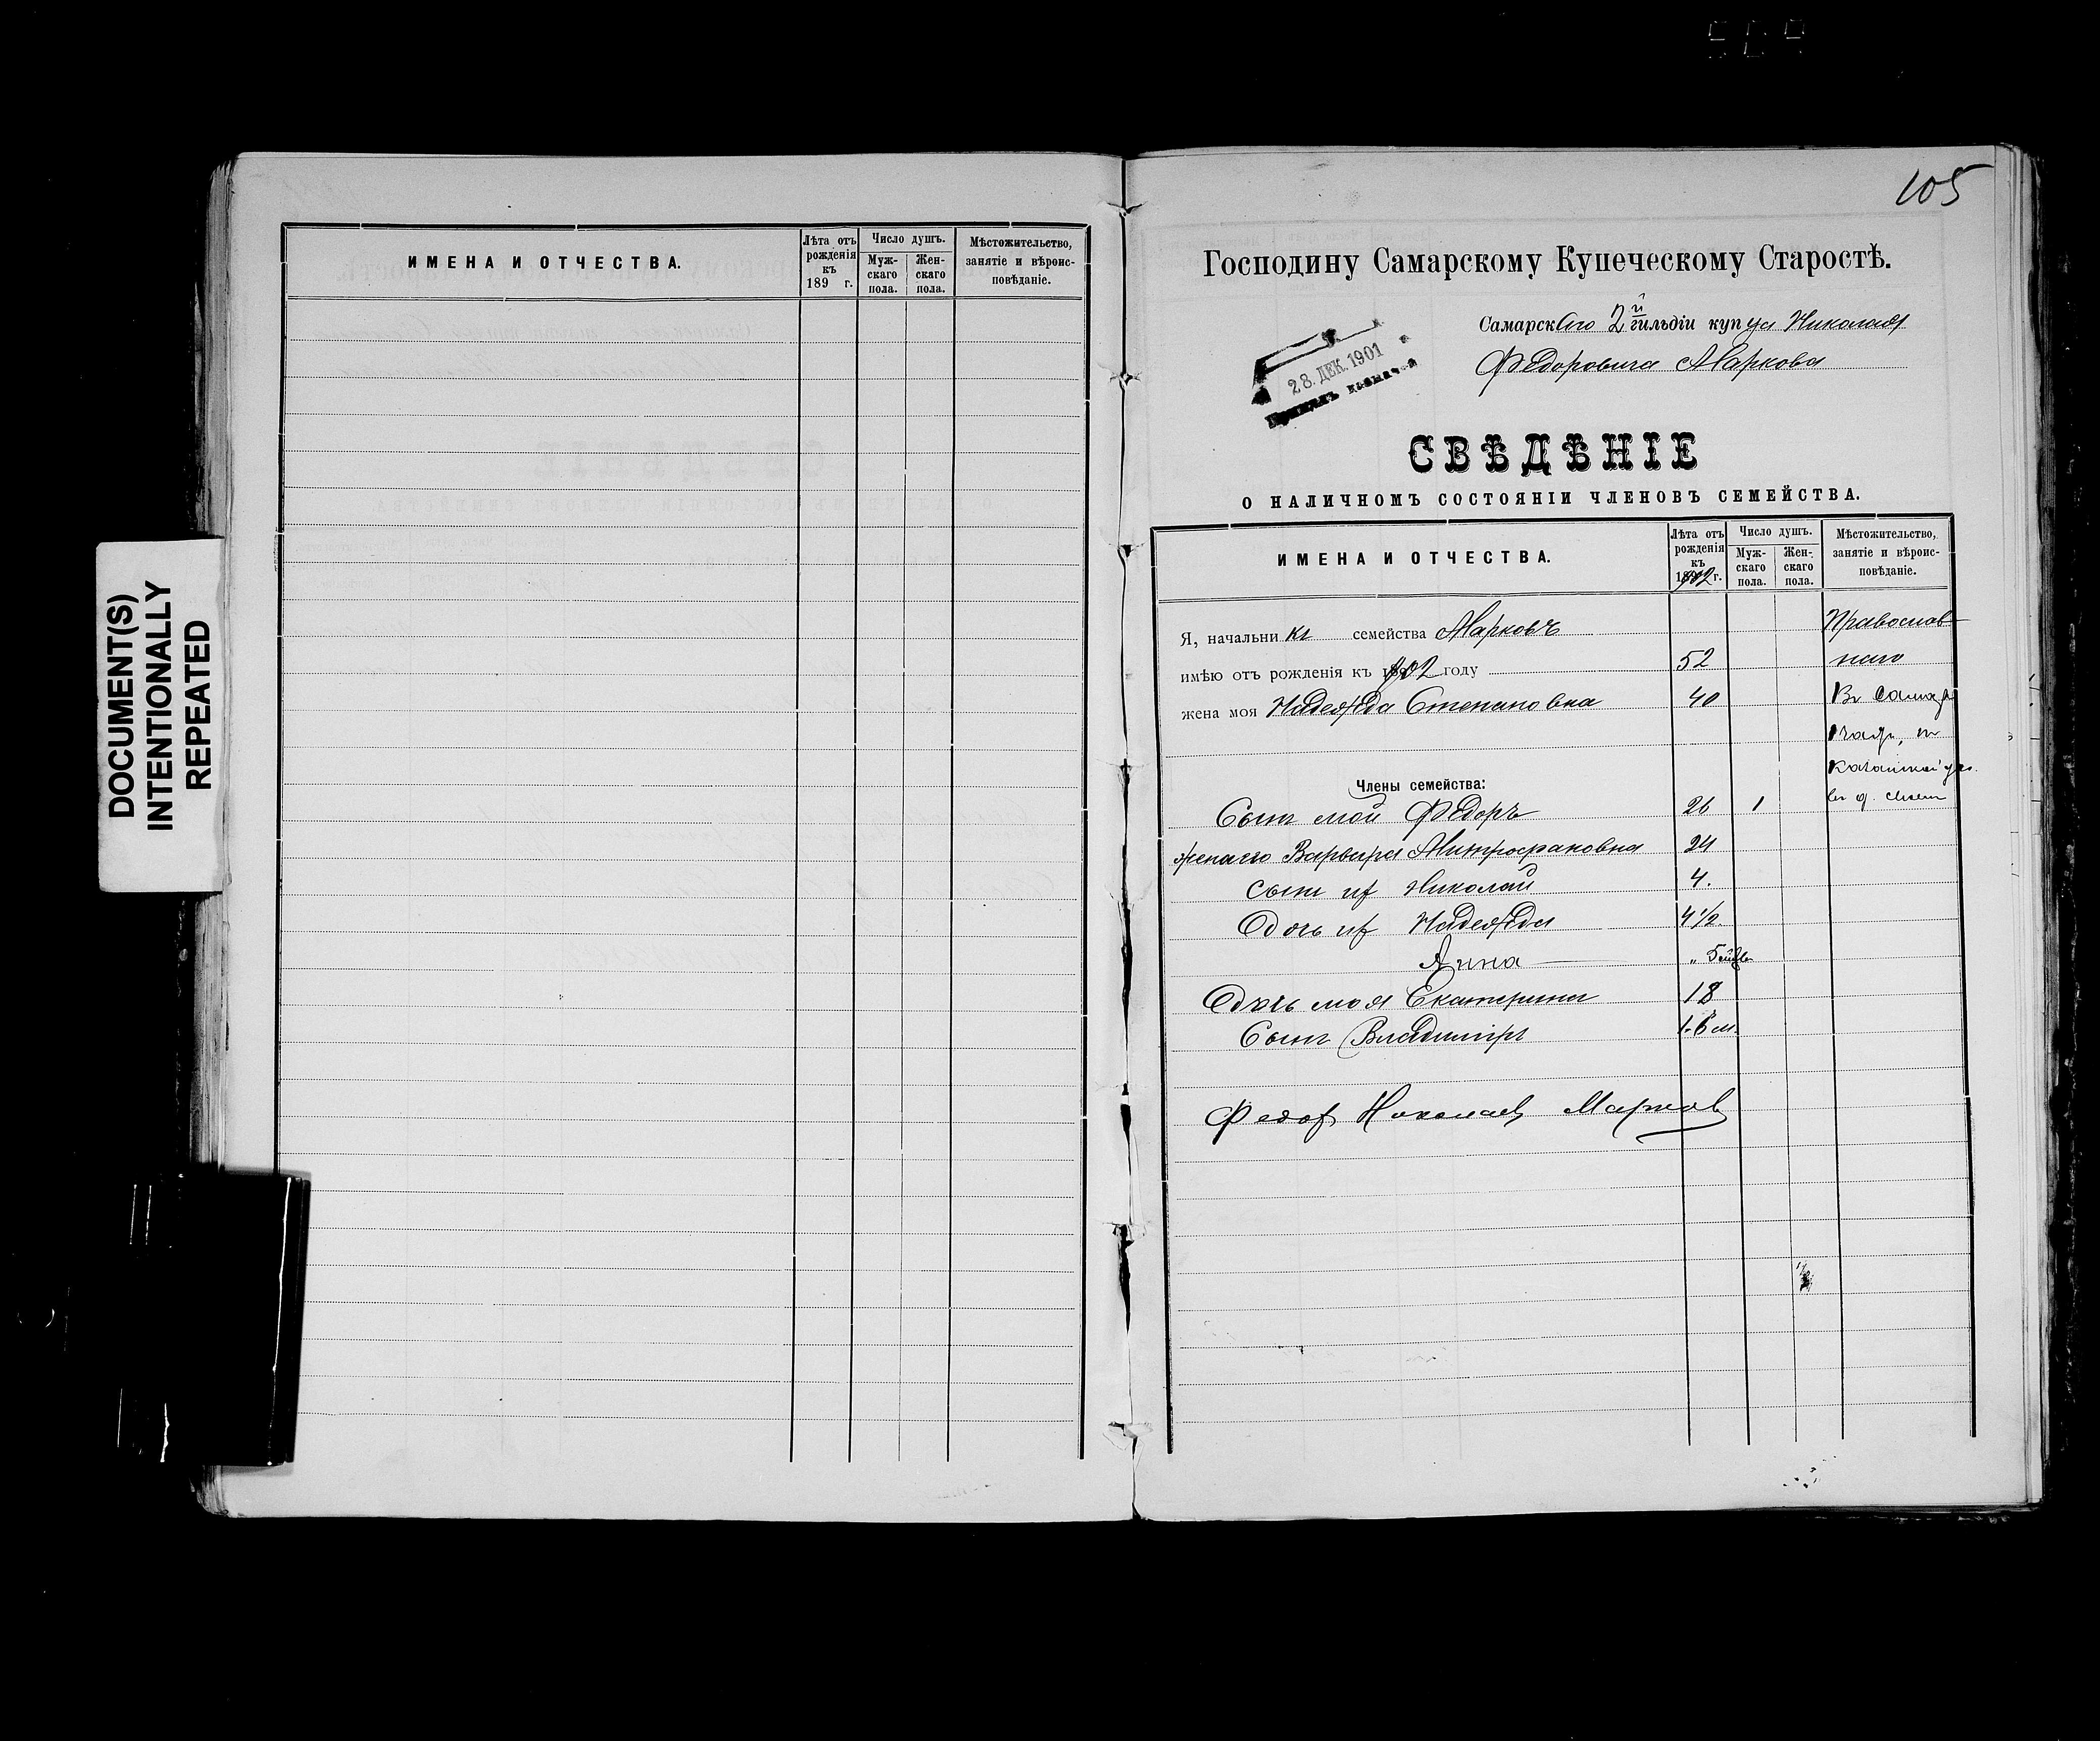 DOCUMENT(S)
INTENTIONALLY
REPEATED
ИМЕНА И ОТЧЕСТВА.
Лѣта отъ
рожденія
къ
189 г.
Число душъ.
Муж-
скаго
пола.
Жен-
скаго
пола.
Мѣстожительство,
занятіе и вѣроис-
повѣданіе.
105
Господину Самарскому Купеческому Старостѣ.
Самарскаго 2й гильдіи купца Николая
Федоровича Маркова
28. ДЕК. 1901
СВѢДѢНІЕ
О НАЛИЧНОМЪ СОСТОЯНІИ ЧЛЕНОВЪ СЕМЕЙСТВА.
ИМЕНА И ОТЧЕСТВА.
Лѣта отъ
рожденія
къ
1902 г.
Число душъ.
Муж-
скаго
пола.
Жен-
скаго
пола.
Мѣстожительство,
занятіе и вѣроис-
повѣданіе.
Я, начальникъ семейства Марковъ Православ
имѣю отъ рожденія къ 1902 году 52 наго
жена моя Надежда Степановна 40 Въ Самар
1 части, на
Члены семейства: Казанской ул.
Сынъ мой Федоръ 26 1 въ д.
жена его Варвара Митрофановна 24
сынъ их Николай 4.
Дочь их Надежда 4 1/2.
Анна " 5
Дочь моя Екатерина 18
Сынъ Владиміръ 1. 6 м.
Федор Николаев Марков